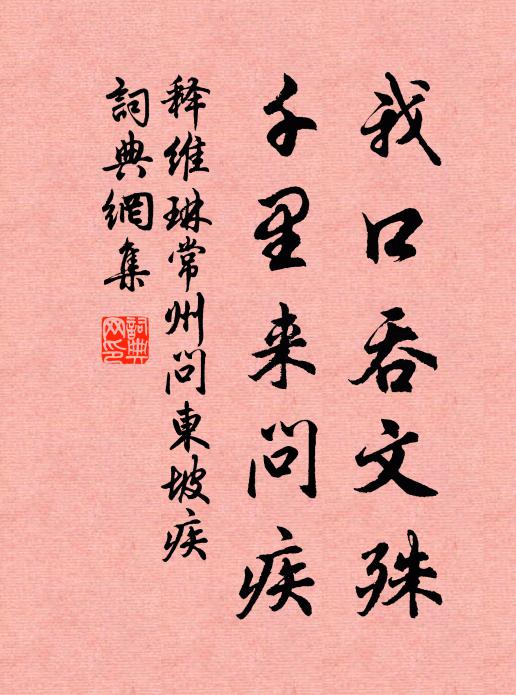 我口吞文殊
千里来問疾
释維琳常州問東坡疾
詞典網集
詞典网印